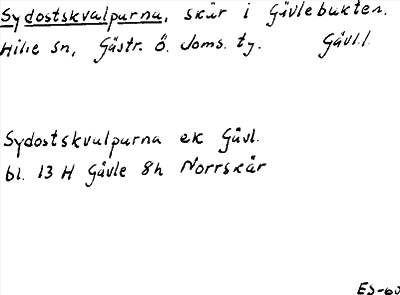 Sydostskvalpurna, skär i Gävlebukten.
Hille sn, Gästr. ö. doms. tg. Gävl.l.
Sydostskvalpurna ek Gävl.
bl. 13 H Gävle 8h Norrskär
ES-60